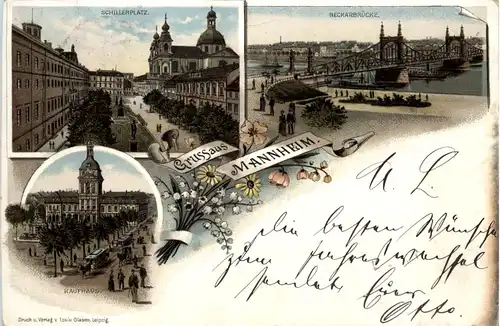 SCHILLERPLATZ.
NECKARBRÜCKE.
Gruss aus
MANNHEIM.
KAUFHAUS
M. L.
die besten Wünsche
zum Jahreswechsel
sendet Euer
Otto.
Druck u. Verlag v. Louis Glaser, Leipzig.